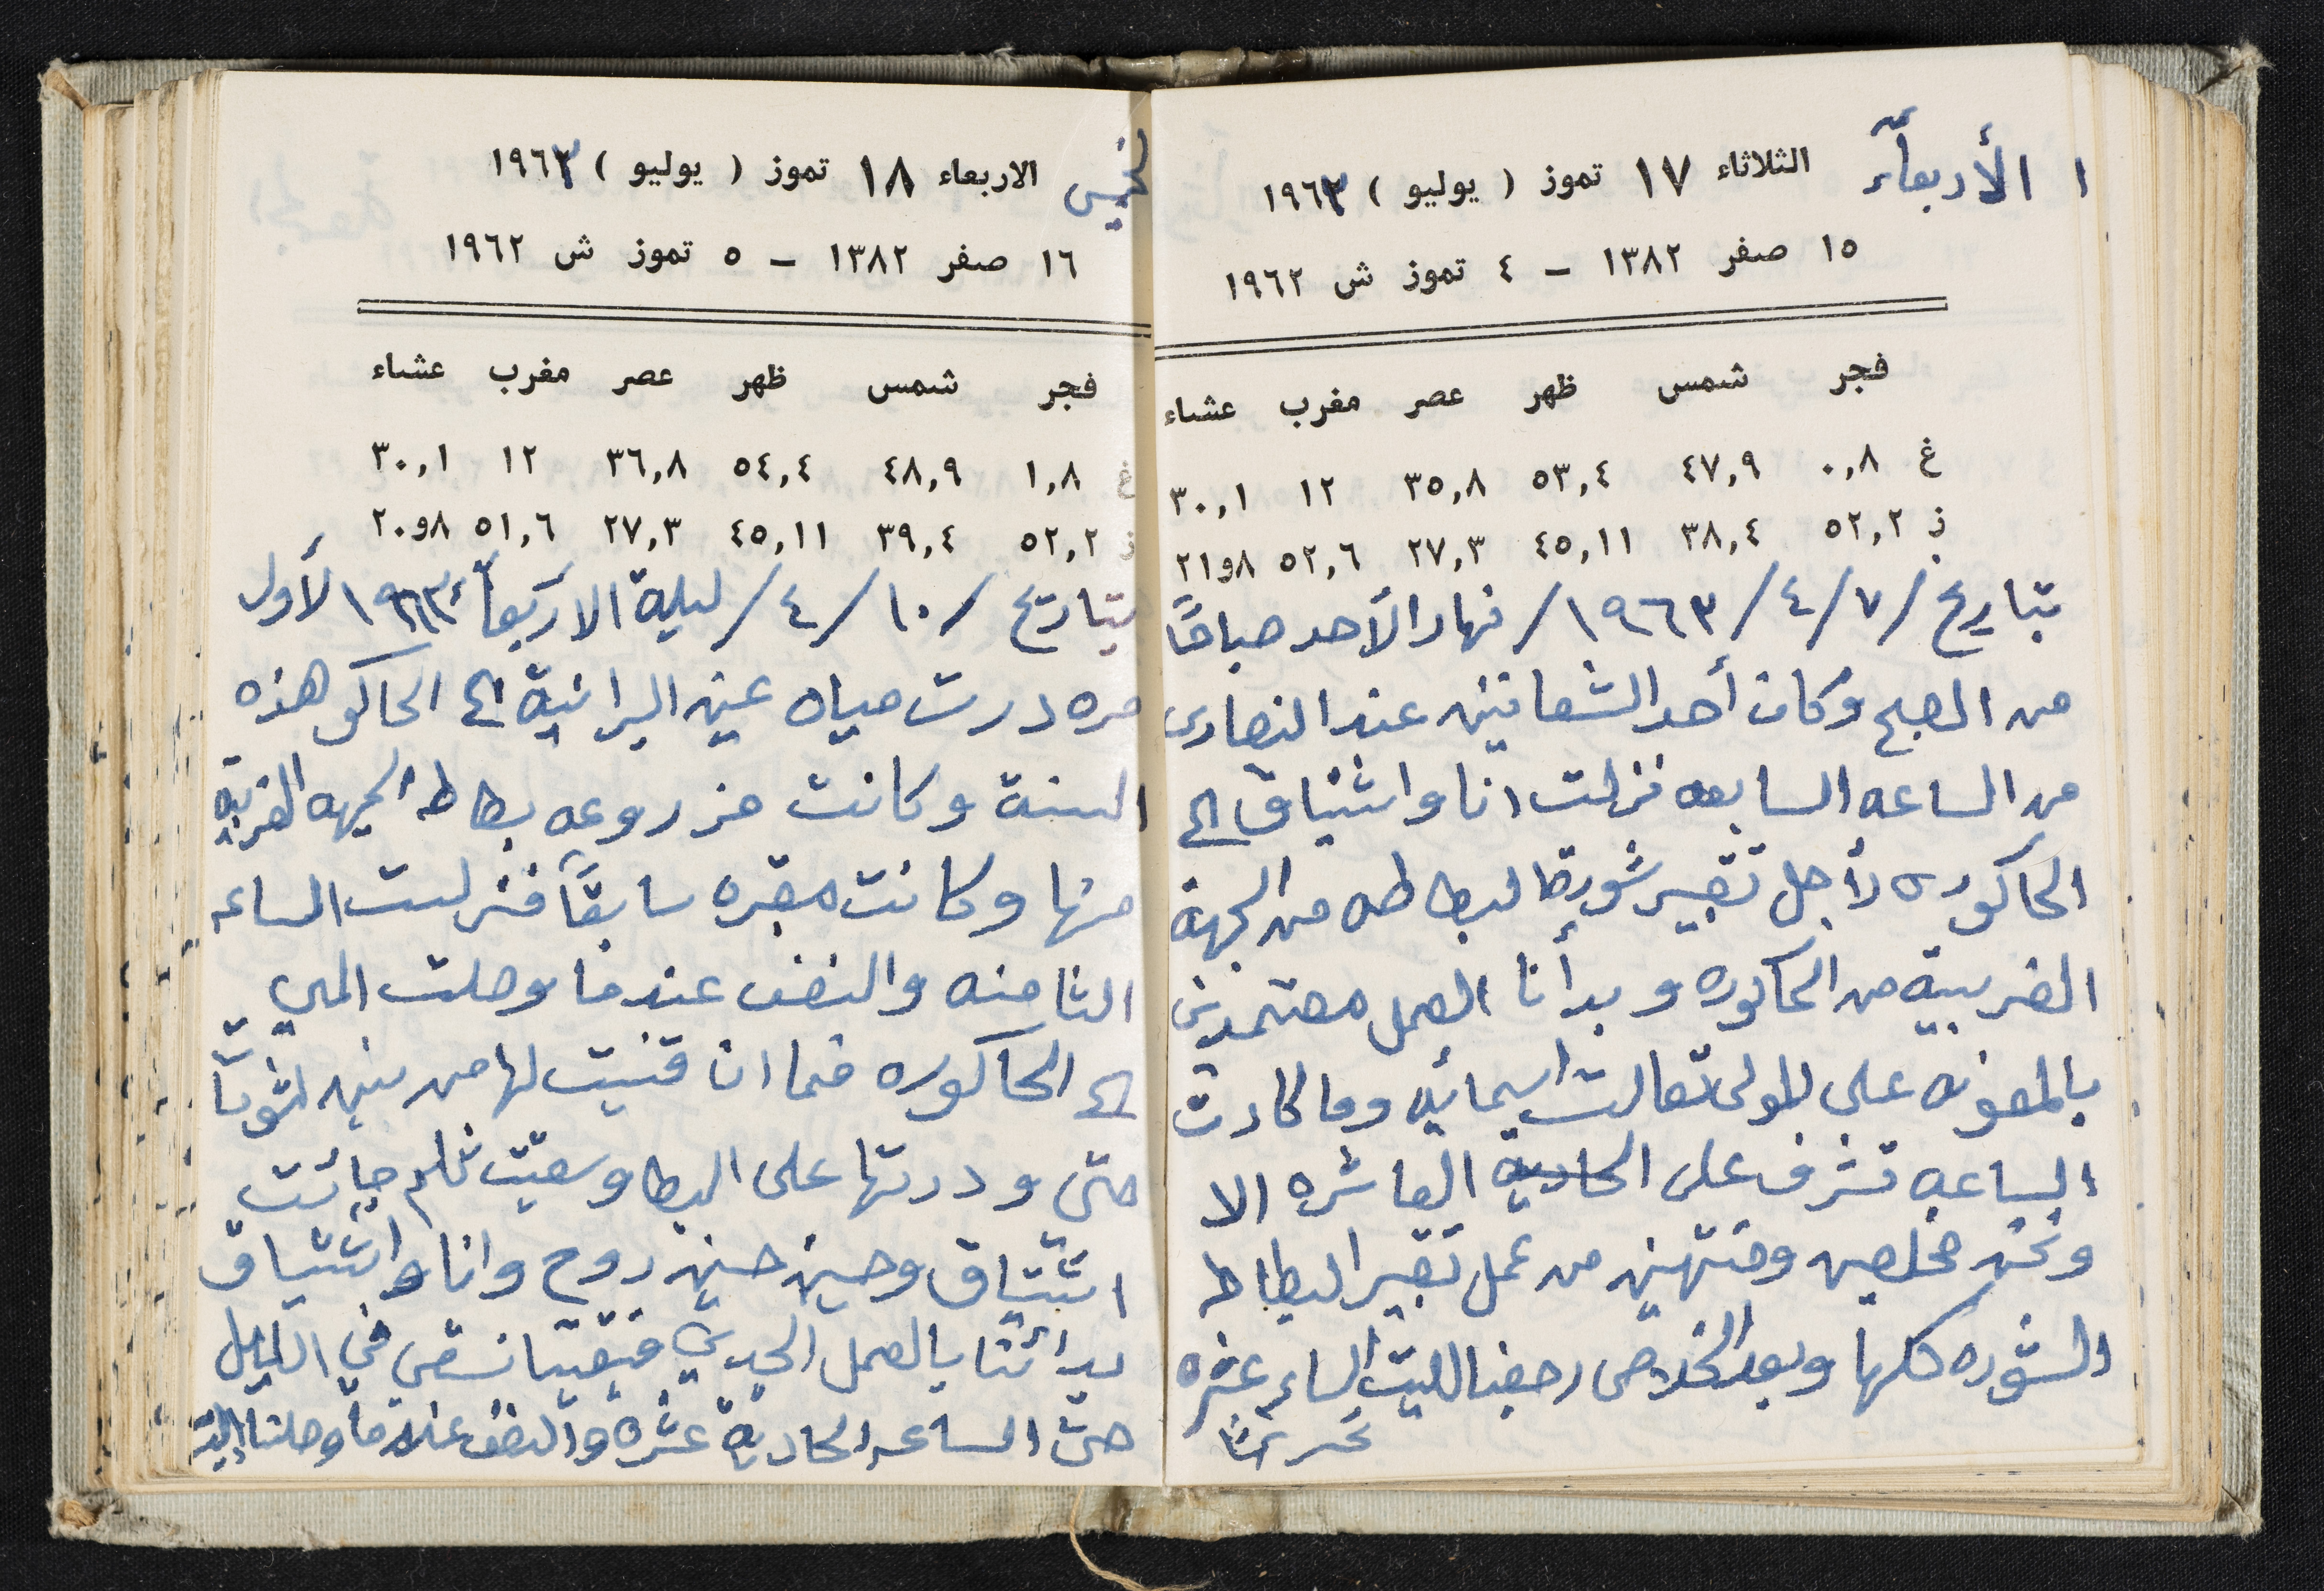 ١ الأربعآء الثلاثاء ١٧ تموز ( يوليو ) ١٩٦٣
١٥ صفر ١٣٨٢ – ٤ تموز ش ١٩٦٢
فجر شمس ظهر عصر مغرب عشاء
غ ٠,٨ ٤٧,٩ ٥٣,٤ ٣٥,٨ ١٢ ٣٠,١
ز ٥٢,٢ ٣٨,٤ ٤٥,١١ ٢٧,٣ ٥٢,٦ ٨و٢١
بتاريخ /٧/٤/١٩٦٣/ نهار الأحد صباحًا
من الصبح وكان أحد الشعانين عند النصارى
من الساعه السابعه نزلت انا واشتياق الى
الحاكوره لأجل تقبير شورة البطاطه من الجهة
الغربية من الحاكوره وبدأنا العمل معتمدين
بالمعونه على المولى تعالت اسمائه وما كادت
الساعه تشرف على الحادية العاشره الا
ونحن مخلصين ومنتهين من عمل تقبير البطاط
الشوره كلها وبعد الخلاص رجعنا للبيت الساعه عشره
تحريرًا
الخميس الاربعاء ١٨ تموز ( يوليو ) ١٩٦٣
١٦ صفر ١٣٨٢ – ٥ تموز ش ١٩٦٢
فجر شمس ظهر عصر مغرب عشاء
غ ١,٨ ٤٨,٩ ٥٤,٤ ٣٦,٨ ١٢ ٣٠,١
ز ٥٢,٢ ٣٩,٤ ٤٥,١١ ٢٧,٣ ٥١,٦ ٨و٢٠
بتاريخ /١٠/٤/ ليلة الاربعآء ١٩٦٣ لأول
مره درت مياه عين البرانية الى الحاكوره هذه
السنة وكانت مزروعه بطاطه الجهه الغربيه
منها وكانت مقبره سابقًا فنزلت الساعه
الثامنه والنصف عندما وصلت المي
الى الحاكوره فما ان قنيت لها من بين
حتى ودرتها على البطا وسقيت ثلم جائت
اشتياق وحين حنين روح وانا واشتياق
بدائنا بالعمل الجدي فبقينا نسقي في الليل
حتى الساعه الحادية عشره والنصف عندما وصلنا